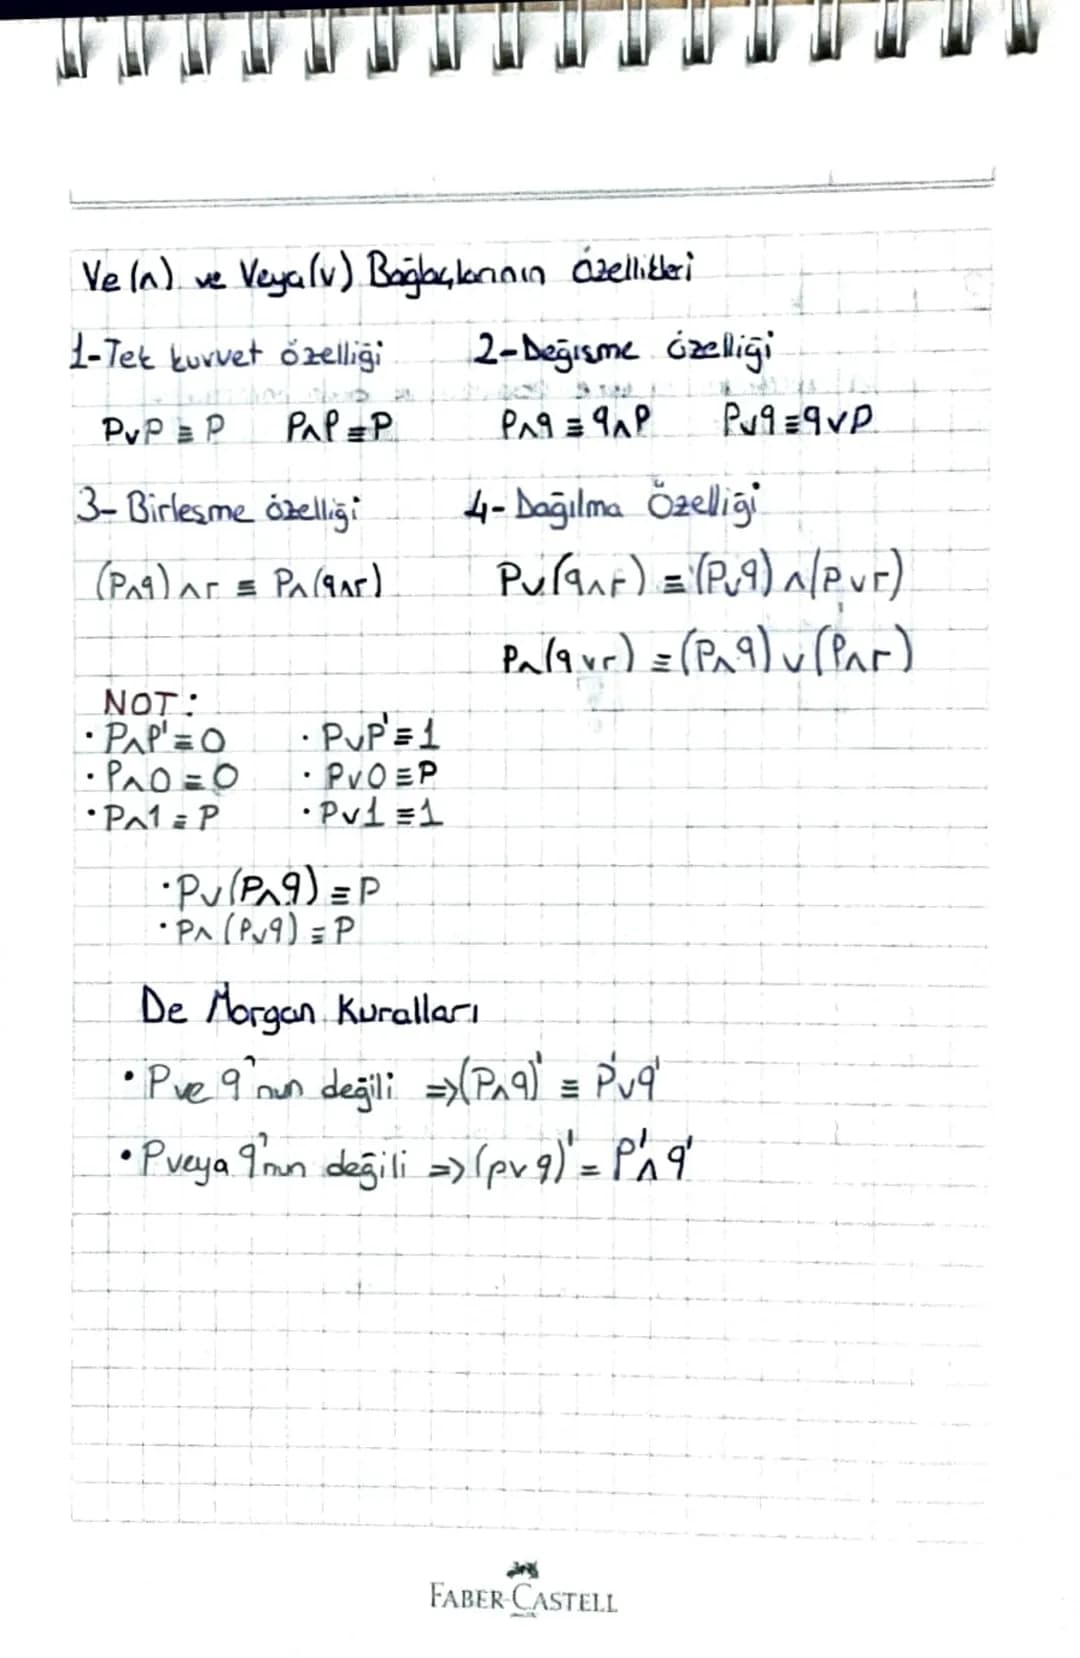 Ve (∧) ve Veya (∨) Bağlaçlarının özellikleri
1-Tek kuvvet özelliği 2-Değişme özelliği
P∨P ≡ P P∧P ≡ P P∧q ≡ q∧P P∨q ≡ q∨P
3- Birleşme özelliği 4- Dağılma Özelliği
(P∧q) ∧ r ≡ P∧(q∧r) P∨(q∧r) ≡ (P∨q) ∧ (P∨r)
P∧(q∨r) ≡ (P∧q) ∨ (P∧r)
NOT:
• P∧P' ≡ 0 • P∨P' ≡ 1
• P∧0 ≡ 0 • P∨0 ≡ P
• P∧1 ≡ P • P∨1 ≡ 1
• P∨(P∧q) ≡ P
• P∧(P∨q) ≡ P
De Morgan Kuralları
• P ve q'nun değili ⇒ (P∧q)' ≡ P'∨q'
• P veya q'nun değili ⇒ (p∨q)' = P'∧q'
FABER-CASTELL